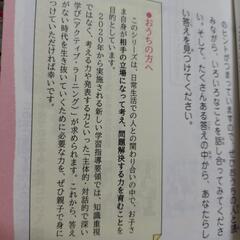 のヒントがつまっていますので、ぜひおうちの人
みながら、いろいろなことを話し合ってみてくださ
い。そして、たくさんある答えの中から、あなたらし
い答えを見つけてください。
●おうちの方へ
このシリーズは、日常生活での人との関わり合いの中で、お子さ
ま自身が相手の立場になって考え、問題解決する力を育むことを
目的としています。
2020年から実施される新しい学習指導要領では、知識重視
ではなく、考える力や発表する力といった「主体的・対話的で深い
学び（アクティブ・ラーニング）」が求められます。これから、答え
がない時代を生き抜いていくために必要な力を、ぜひ親子で身に
つけていただければ幸いです。